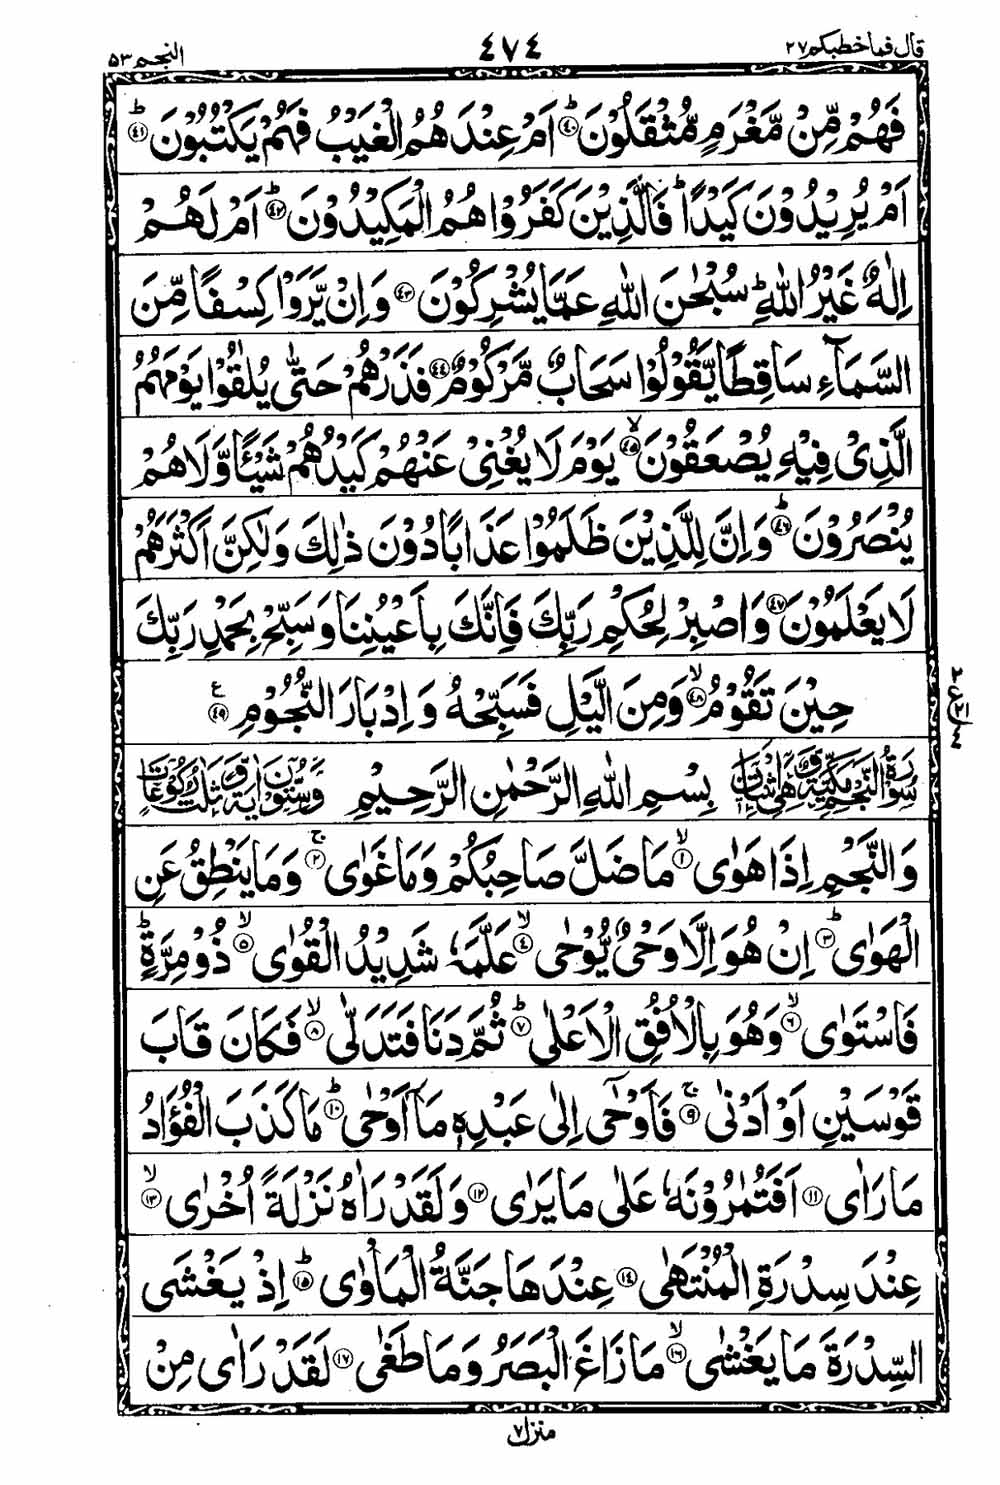 قال فما خطبكم ٢٧ ٤٧٤ النجم ٥٣
فَهُمْ مِّنْ مَّغْرَمٍ مُّثْقَلُوْنَ ؕ۴۰ اَمْ عِنْدَهُمُ الْغَيْبُ فَهُمْ يَكْتُبُوْنَ ؕ۴۱
اَمْ يُرِيْدُوْنَ كَيْدًا ؕ فَالَّذِيْنَ كَفَرُوْا هُمُ الْمَكِيْدُوْنَ ؕ۴۲ اَمْ لَهُمْ
اِلٰهٌ غَيْرُ اللّٰهِ ؕ سُبْحٰنَ اللّٰهِ عَمَّا يُشْرِكُوْنَ ۴۳ وَاِنْ يَّرَوْا كِسْفًا مِّنَ
السَّمَآءِ سَاقِطًا يَّقُوْلُوْا سَحَابٌ مَّرْكُوْمٌ ۴۴ فَذَرْهُمْ حَتّٰى يُلٰقُوْا يَوْمَهُمُ
الَّذِىْ فِيْهِ يُصْعَقُوْنَ ۙ۴۵ يَوْمَ لَا يُغْنِىْ عَنْهُمْ كَيْدُهُمْ شَيْئًا وَّلَا هُمْ
يُنْصَرُوْنَ ؕ۴۶ وَاِنَّ لِلَّذِيْنَ ظَلَمُوْا عَذَابًا دُوْنَ ذٰلِكَ وَلٰكِنَّ اَكْثَرَهُمْ
لَا يَعْلَمُوْنَ ۴۷ وَاصْبِرْ لِحُكْمِ رَبِّكَ فَاِنَّكَ بِاَعْيُنِنَا وَسَبِّحْ بِحَمْدِ رَبِّكَ
حِيْنَ تَقُوْمُ ۙ۴۸ وَمِنَ الَّيْلِ فَسَبِّحْهُ وَاِدْبَارَ النُّجُوْمِ ۴۹ ع
سُوْرَةُ النَّجْمِ مَكِّيَّةٌ وَّهِىَ اثْنَتَانِ بِسْمِ اللّٰهِ الرَّحْمٰنِ الرَّحِيْمِ وَسِتُّوْنَ اٰيَةً وَّثَلٰثُ رُكُوْعَاتٍ
وَالنَّجْمِ اِذَا هَوٰى ۙ۱ مَا ضَلَّ صَاحِبُكُمْ وَمَا غَوٰى ۚ۲ وَمَا يَنْطِقُ عَنِ
الْهَوٰى ؕ۳ اِنْ هُوَ اِلَّا وَحْىٌ يُّوْحٰى ۙ۴ عَلَّمَهٗ شَدِيْدُ الْقُوٰى ۙ۵ ذُوْ مِرَّةٍ ؕ
فَاسْتَوٰى ۙ۶ وَهُوَ بِالْاُفُقِ الْاَعْلٰى ؕ۷ ثُمَّ دَنَا فَتَدَلّٰى ۙ۸ فَكَانَ قَابَ
قَوْسَيْنِ اَوْ اَدْنٰى ۚ۹ فَاَوْحٰٓى اِلٰى عَبْدِهٖ مَاۤ اَوْحٰى ؕ۱۰ مَا كَذَبَ الْفُؤَادُ
مَا رَاٰى ۱۱ اَفَتُمٰرُوْنَهٗ عَلٰى مَا يَرٰى ۱۲ وَلَقَدْ رَاٰهُ نَزْلَةً اُخْرٰى ۙ۱۳
عِنْدَ سِدْرَةِ الْمُنْتَهٰى ۱۴ عِنْدَهَا جَنَّةُ الْمَاْوٰى ؕ۱۵ اِذْ يَغْشَى
السِّدْرَةَ مَا يَغْشٰى ۙ۱۶ مَا زَاغَ الْبَصَرُ وَمَا طَغٰى ۱۷ لَقَدْ رَاٰى مِنْ
منزل ٧